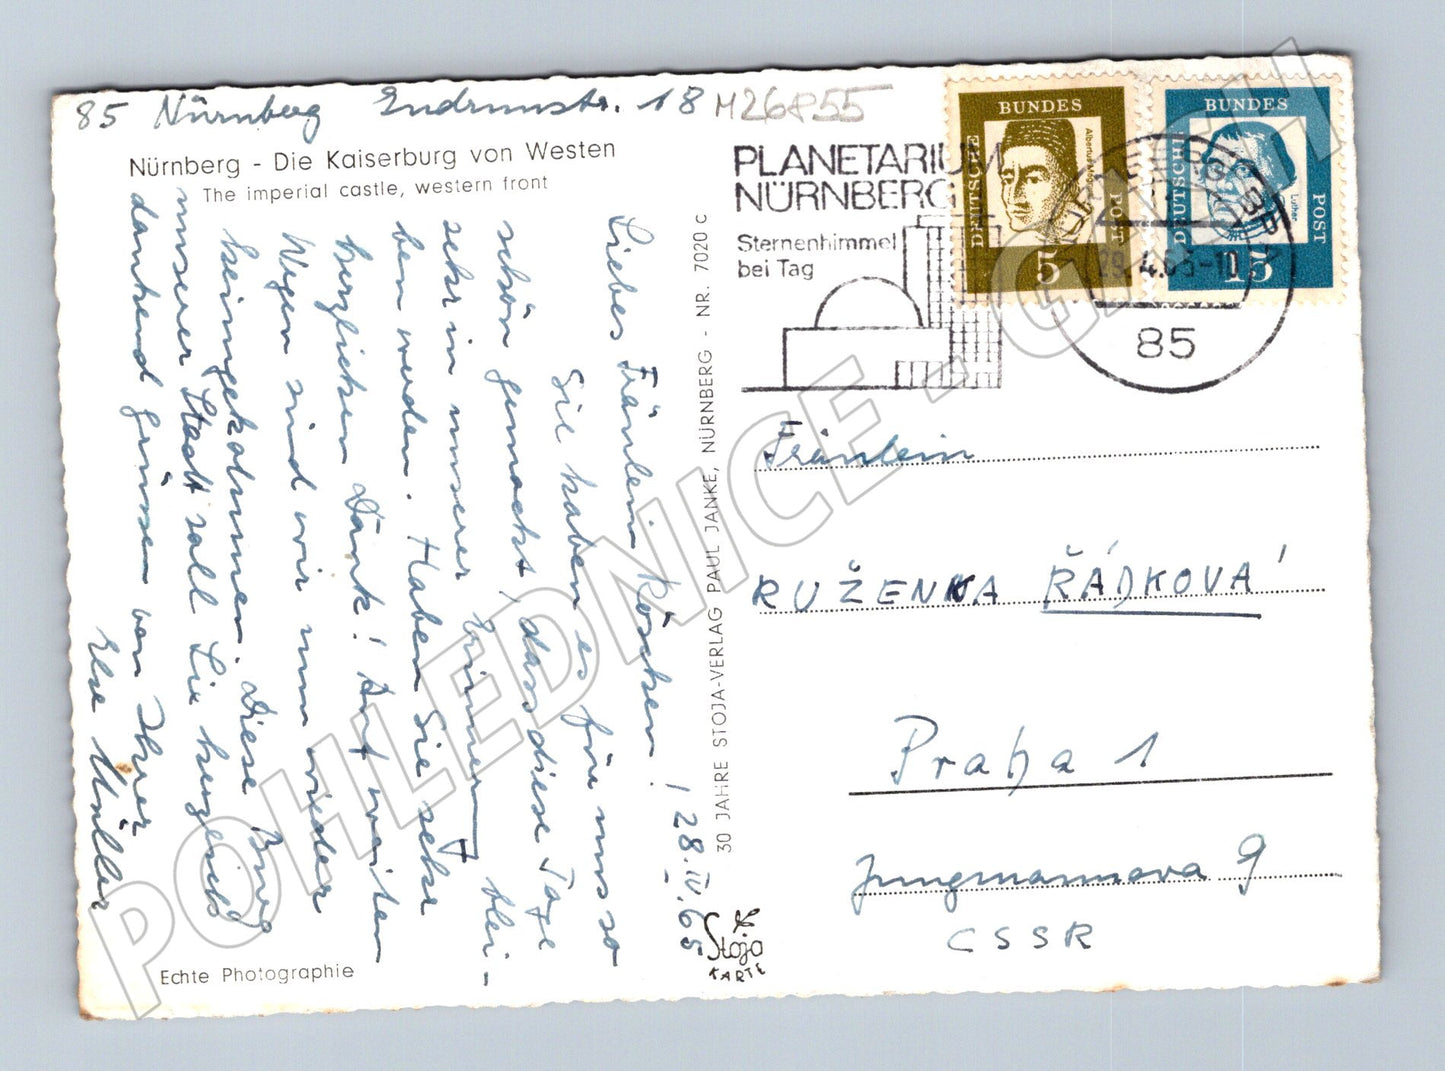 85 Nürnberg Endrunstr. 18
M26855
Nürnberg - Die Kaiserburg von Westen
The imperial castle, western front
28.IV.65
Liebes Fräulein Röschen!
Sie haben es für uns so
schön gemacht, dass diese Tage
sehr in unserer Erinnerung blei-
ben werden. Haben Sie sehr
herzlichen Dank! Auf weiten
Wegen sind wir nun wieder
heimgekommen. Diese Burg
unserer Stadt soll Sie herzlich
dankend grüssen von Ihrer
Else Müller
Echte Photographie
30 JAHRE STOJA-VERLAG PAUL JANKE, NÜRNBERG - NR. 7020 C
Stoja
KARTE
PLANETARIUM
NÜRNBERG
Sternenhimmel
bei Tag
DEUTSCHE
BUNDES
POST
Albertus
5
DEUTSCHE
BUNDES
POST
Luther
15
NÜRNBERG
29.4.65-10
85
Fräulein
RUŽENKA ŘÁDKOVÁ
Praha 1
Jungmannova 9
CSSR
POHLEDNICE - GMPH